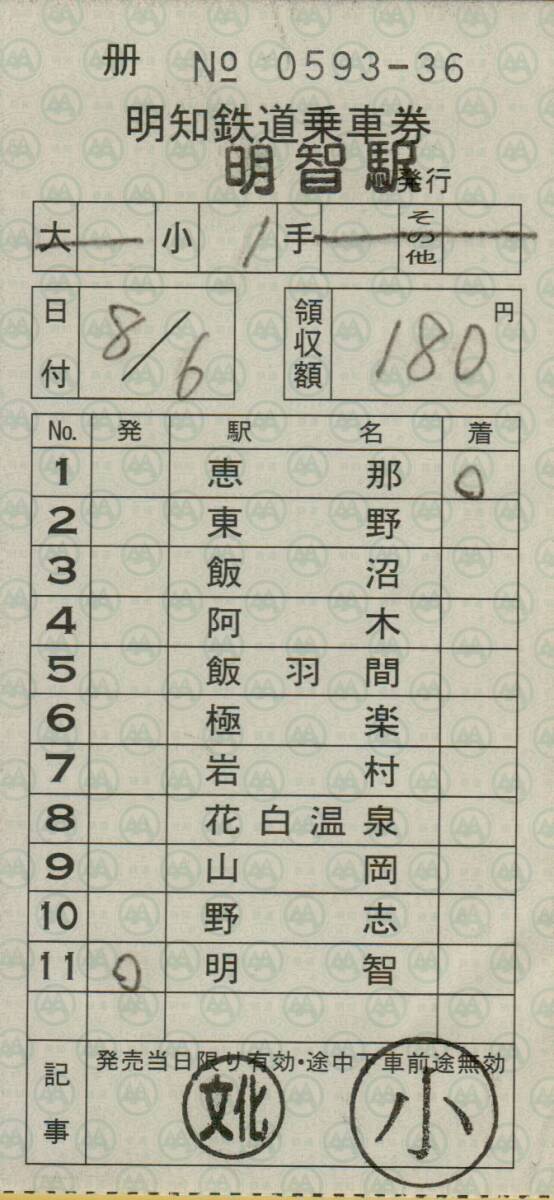 册 № 0593-36
明知鉄道乗車券
明智駅発行
大 小 1 手 その他
日付 8/6 領収額 180 円
No. 発 駅名 着
1 恵那 ○
2 東野
3 飯沼
4 阿木
5 飯羽間
6 極楽
7 岩村
8 花白温泉
9 山岡
10 野志
11 ○ 明智
記事 発売当日限り有効・途中下車前途無効
文化 小